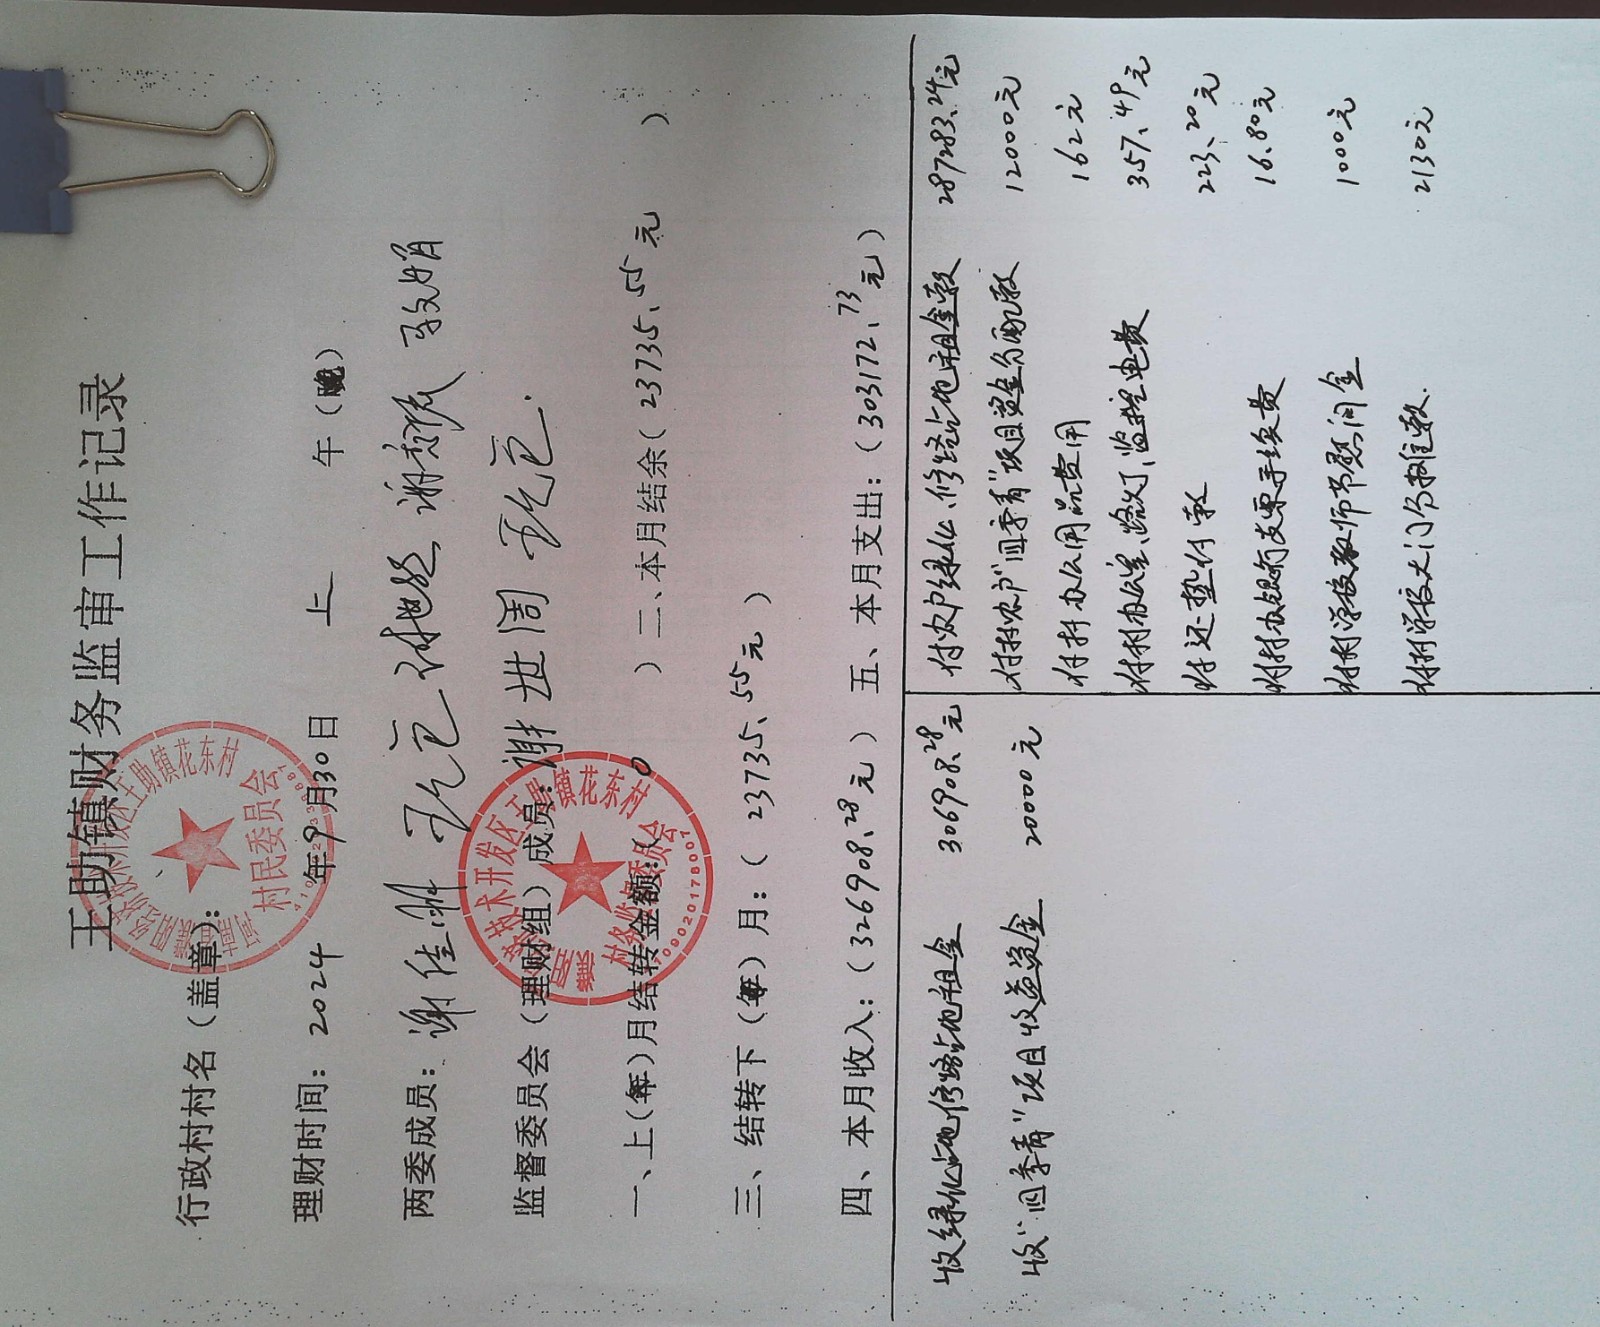 王助镇财务监审工作记录
行政村村名（盖章）：
村民委员会
理财时间：2024年9月30日 上 午（晚）
两委成员：
监督委员会（理财组）成员：谢世周
王助镇花东村
村务监督委员会
7090201178001
一、上（年）月结转金额：（0 ）二、本月结余（23735、55元 ）
三、结转下（年）月：（23735、55元 ）
四、本月收入：（326908、28元）五、本月支出：（303172、73元）
收绿化占地修路占地租金 306908、28元
收“四季青”项目收益资金 20000元
付农户绿化、修路占地租金款 287283、24元
付村农户“四季青”项目资金分配款 12000元
付村办公用品费用 162元
付村办公室、路灯、监控电费 357、49元
付还垫付款 223、20元
付村办银行支票手续费 16、80元
付村学校教师节慰问金 1000元
付村学校大门分摊款. 2130元